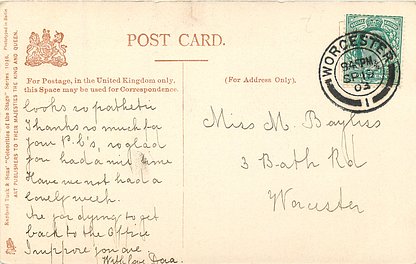 POST CARD.
For Postage, in the United Kingdom only,
this Space may be used for Correspondence.
(For Address Only).
Raphael Tuck & Sons' "Celebrities of the Stage" Series
ART PUBLISHERS TO THEIR MAJESTIES THE KING AND QUEEN.
WORCESTER
SP 19
03
1
Looks so pathetic
Thanks so much for
your P.C's, so glad
you had a nice time
Have we not had a
lovely week.
Are you dying to get
back to the Office
I suppose you are.
With love Dora.
Miss M. Bayliss
3 Bath Rd
Worcester